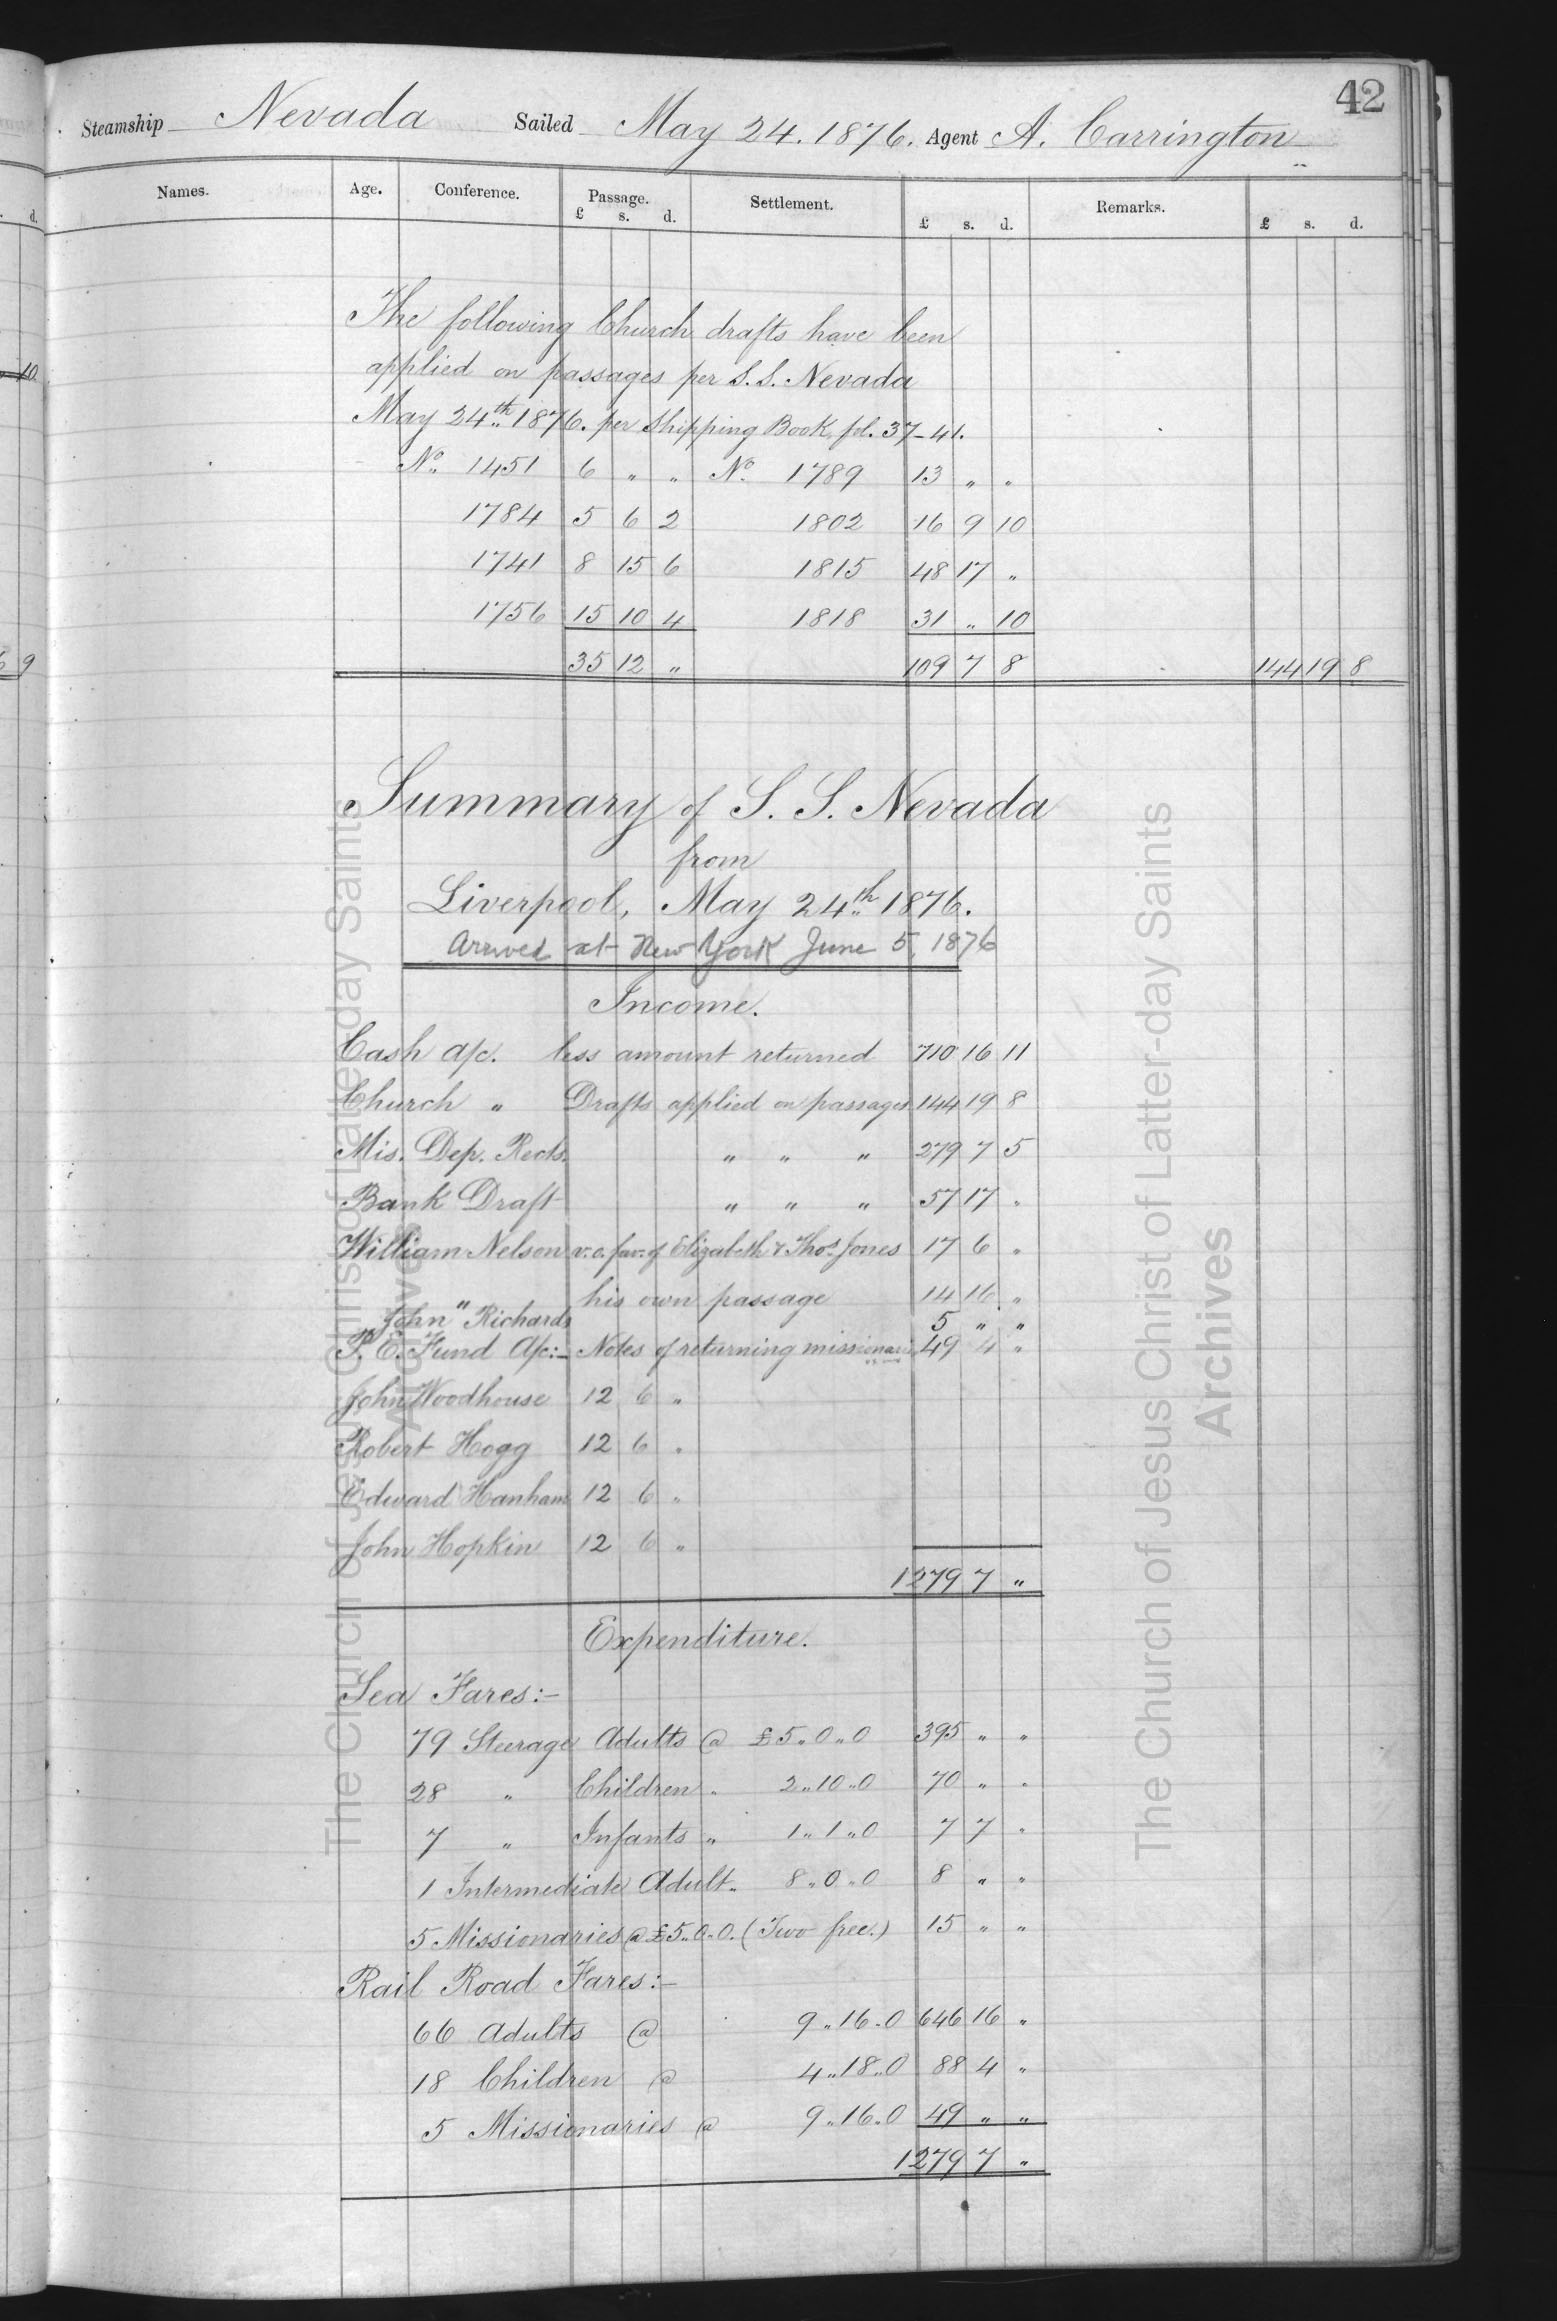 42
Steamship Nevada Sailed May 24. 1876. Agent A. Carrington
Names. Age. Conference. Passage. £ s. d. Settlement. £ s. d. Remarks. £ s. d.
d.
10
9
The following Church drafts have been
applied on passages per S.S. Nevada
May 24th 1876. per Shipping Book, fol. 37-41.
No. 1451 6 " " No. 1789 13 " "
1784 5 6 2 1802 16 9 10
1741 8 15 6 1815 48 17 "
1756 15 10 4 1818 31 " 10
35 12 " 109 7 8 144 19 8
Summary of S. S. Nevada
from
Liverpool, May 24th 1876.
Arrived at New York June 5, 1876
Income.
Cash a/c. less amount returned 710 16 11
Church " Drafts applied on passages 144 19 8
Mis. Dep. Rects. " " " 279 7 5
Bank Draft " " " 57 17 "
William Nelson v.o. fav. of Elizabeth & Thos. Jones 17 6 "
" his own passage 14 16 "
John Richards 5 " "
P. E. Fund A/c:- Notes of returning missionaries 49 4 "
John Woodhouse 12 6 "
Robert Hogg 12 6 "
Edward Hanham 12 6 "
John Hopkin 12 6 "
1279 7 "
Expenditure.
Sea Fares:-
79 Steerage Adults @ £5"0"0 395 " "
28 " Children " 2"10"0 70 " "
7 " Infants " 1"1"0 7 7 "
1 Intermediate Adult " 8"0"0 8 " "
5 Missionaries @ £5"0"0. (Two free.) 15 " "
Rail Road Fares:-
66 Adults @ 9"16"0 646 16 "
18 Children @ 4"18"0 88 4 "
5 Missionaries @ 9"16"0 49 " "
1279 7 "
The Church of Jesus Christ of Latter-day Saints
Archives
The Church of Jesus Christ of Latter-day Saints
Archives